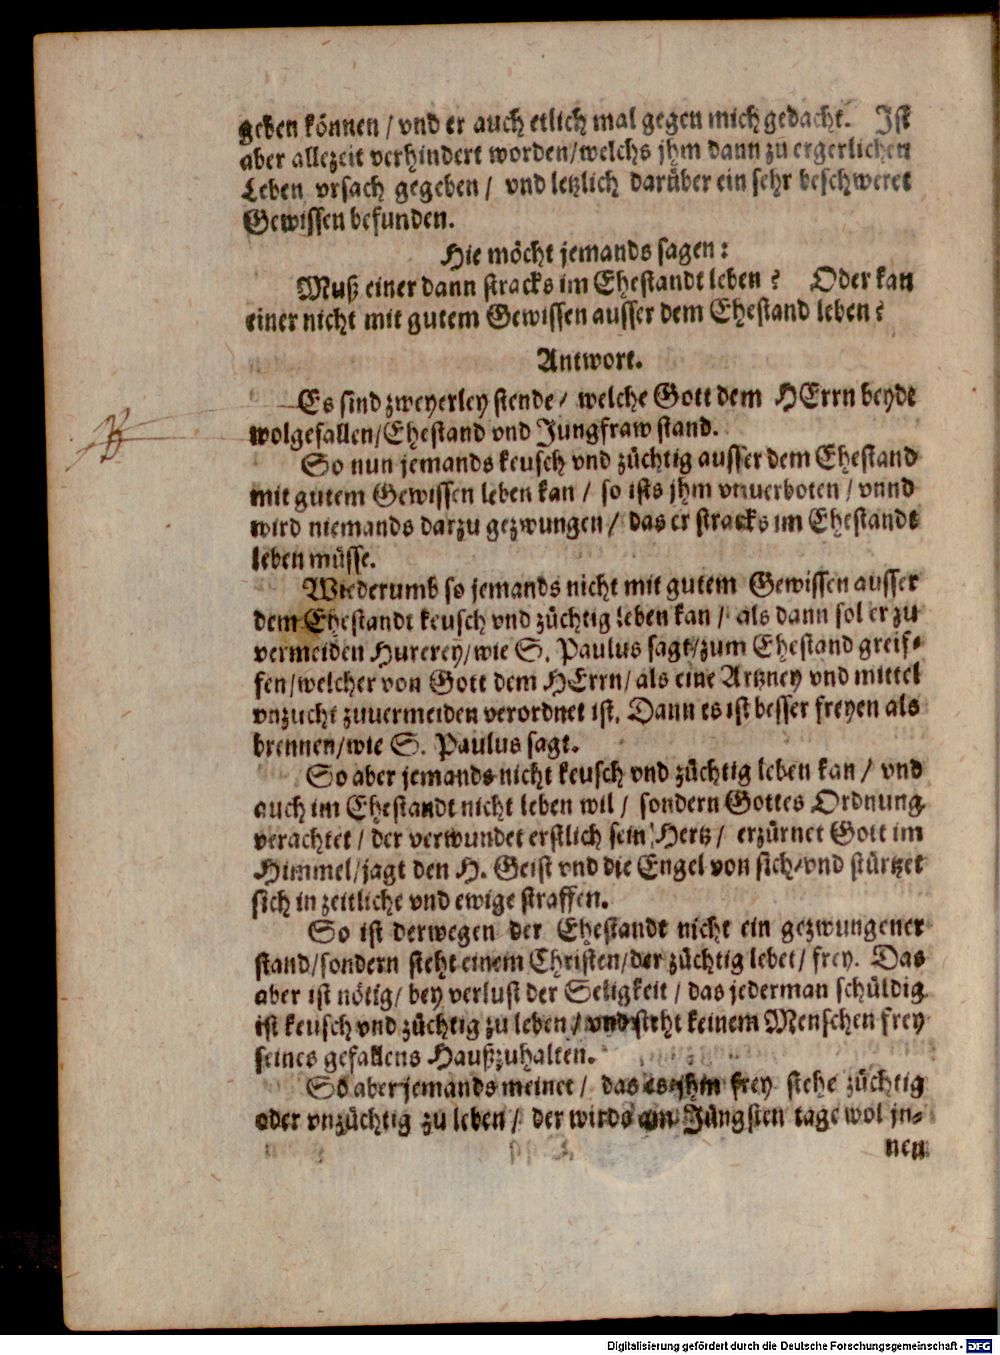 geben können / vnd er auch etlich mal gegen mich gedacht. Ist
aber allezeit verhindert worden/welchs jhm dann zu ergerlichen
Leben vrsach gegeben / vnd letzlich darüber ein sehr beschweret
Gewissen befunden.
Hie möcht jemands sagen:
Muß einer dann stracks im Ehestandt leben? Oder kan
einer nicht mit gutem Gewissen ausser dem Ehestand leben?
Antwort.
Es sind zweyerley stende / welche Gott dem HErrn beyde
wolgefallen/Ehestand vnd Jungfraw stand.
So nun jemands keusch vnd züchtig ausser dem Ehestand
mit gutem Gewissen leben kan / so ists jhm vnuerboten / vnnd
wird niemands darzu gezwungen / das er stracks im Ehestandt
leben müsse.
Wiederumb so jemands nicht mit gutem Gewissen ausser
dem Ehestandt keusch vnd züchtig leben kan / als dann sol er zu
vermeiden Hurerey/wie S. Paulus sagt/zum Ehestand greif-
fen/welcher von Gott dem HErrn/ als eine Artzney vnd mittel
vnzucht zuuermeiden verordnet ist. Dann es ist besser freyen als
brennen/wie S. Paulus sagt.
So aber jemands nicht keusch vnd züchtig leben kan / vnd
auch im Ehestandt nicht leben wil / sondern Gottes Ordnung
verachtet / der verwundet erstlich sein Hertz / erzürnet Gott im
Himmel/jagt den H. Geist vnd die Engel von sich/vnd stürtzet
sich in zeitliche vnd ewige straffen.
So ist derwegen der Ehestandt nicht ein gezwungener
stand/sondern steht einem Christen/der züchtig lebet/ frey. Das
aber ist nötig/ bey verlust der Seligkeit / das jederman schüldig
ist keusch vnd züchtig zu leben / vnd steht keinem Menschen frey
seines gefallens Haußzuhalten.
So aber jemands meinet / das es jhm frey stehe züchtig
oder vnzüchtig zu leben / der wirds am Jüngsten tage wol jn-
nen
Digitalisierung gefördert durch die Deutsche Forschungsgemeinschaft - DFG